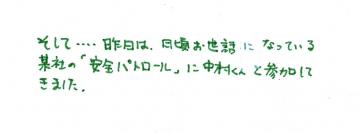 そして‥‥昨日は、日頃お世話になっている
某社の「安全パトロール」に中村くんと参加して
きました.